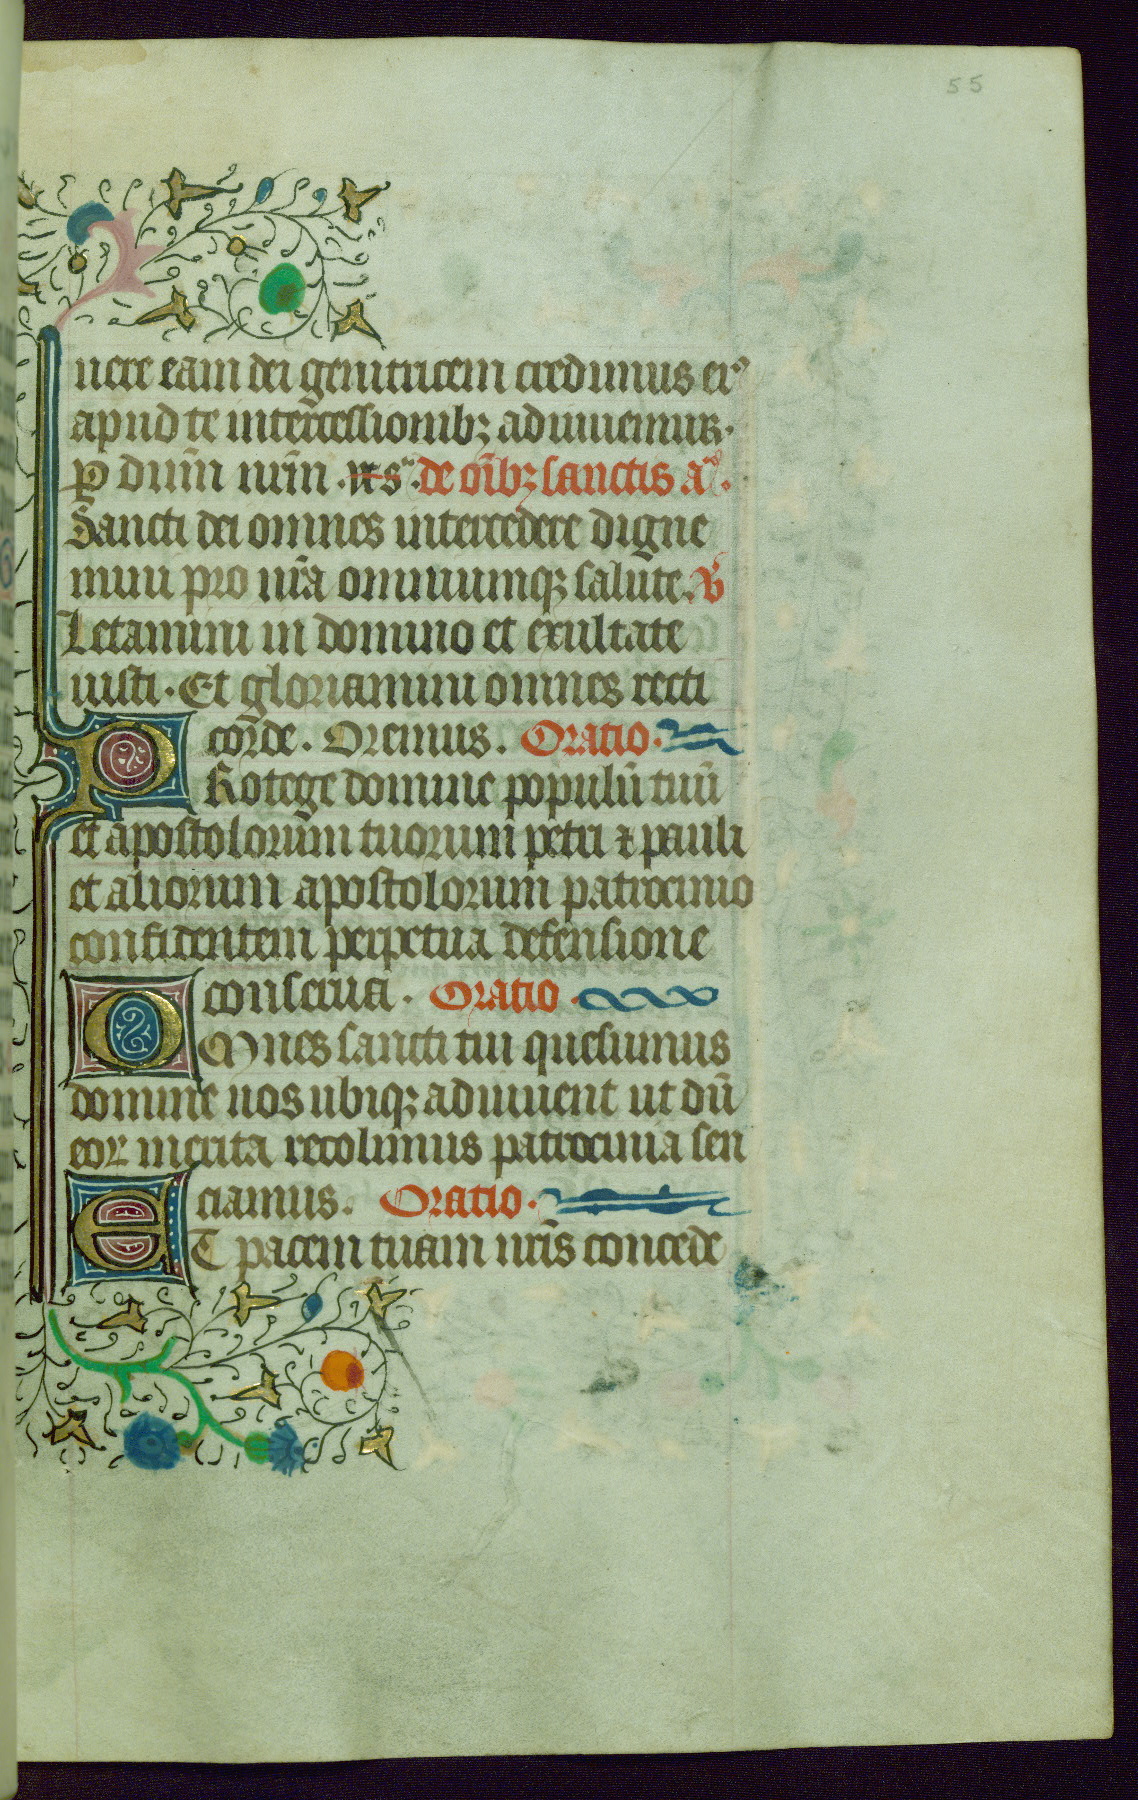 55
uere eam dei genitricem credimus ei9
apud te intercessionibꝫ adiuuemur.
ꝑ dn̄m nr̄m. de oı̄bꝫ sanctis a͞.
Sancti dei omnes intercedere digne
mini pro nr̄a omniumqꝫ salute. v̄
Letamini in domino et exultate
iusti. Et gloriamini omnes recti
corde. Oremus. Oratio.
PRotege domine populū tuū
et apostolorum tuorum petri ⁊ pauli
et aliorum apostolorum patrocinio
confidentem perpetua defensione
conserua. Oratio
OMnes sancti tui quesumus
domine nos ubiqꝫ adiuuent ut dū
eoꝝ merita recolimus patrocinia sen
ciamus. Oratio.
ET pacem tuam nr̄is concede